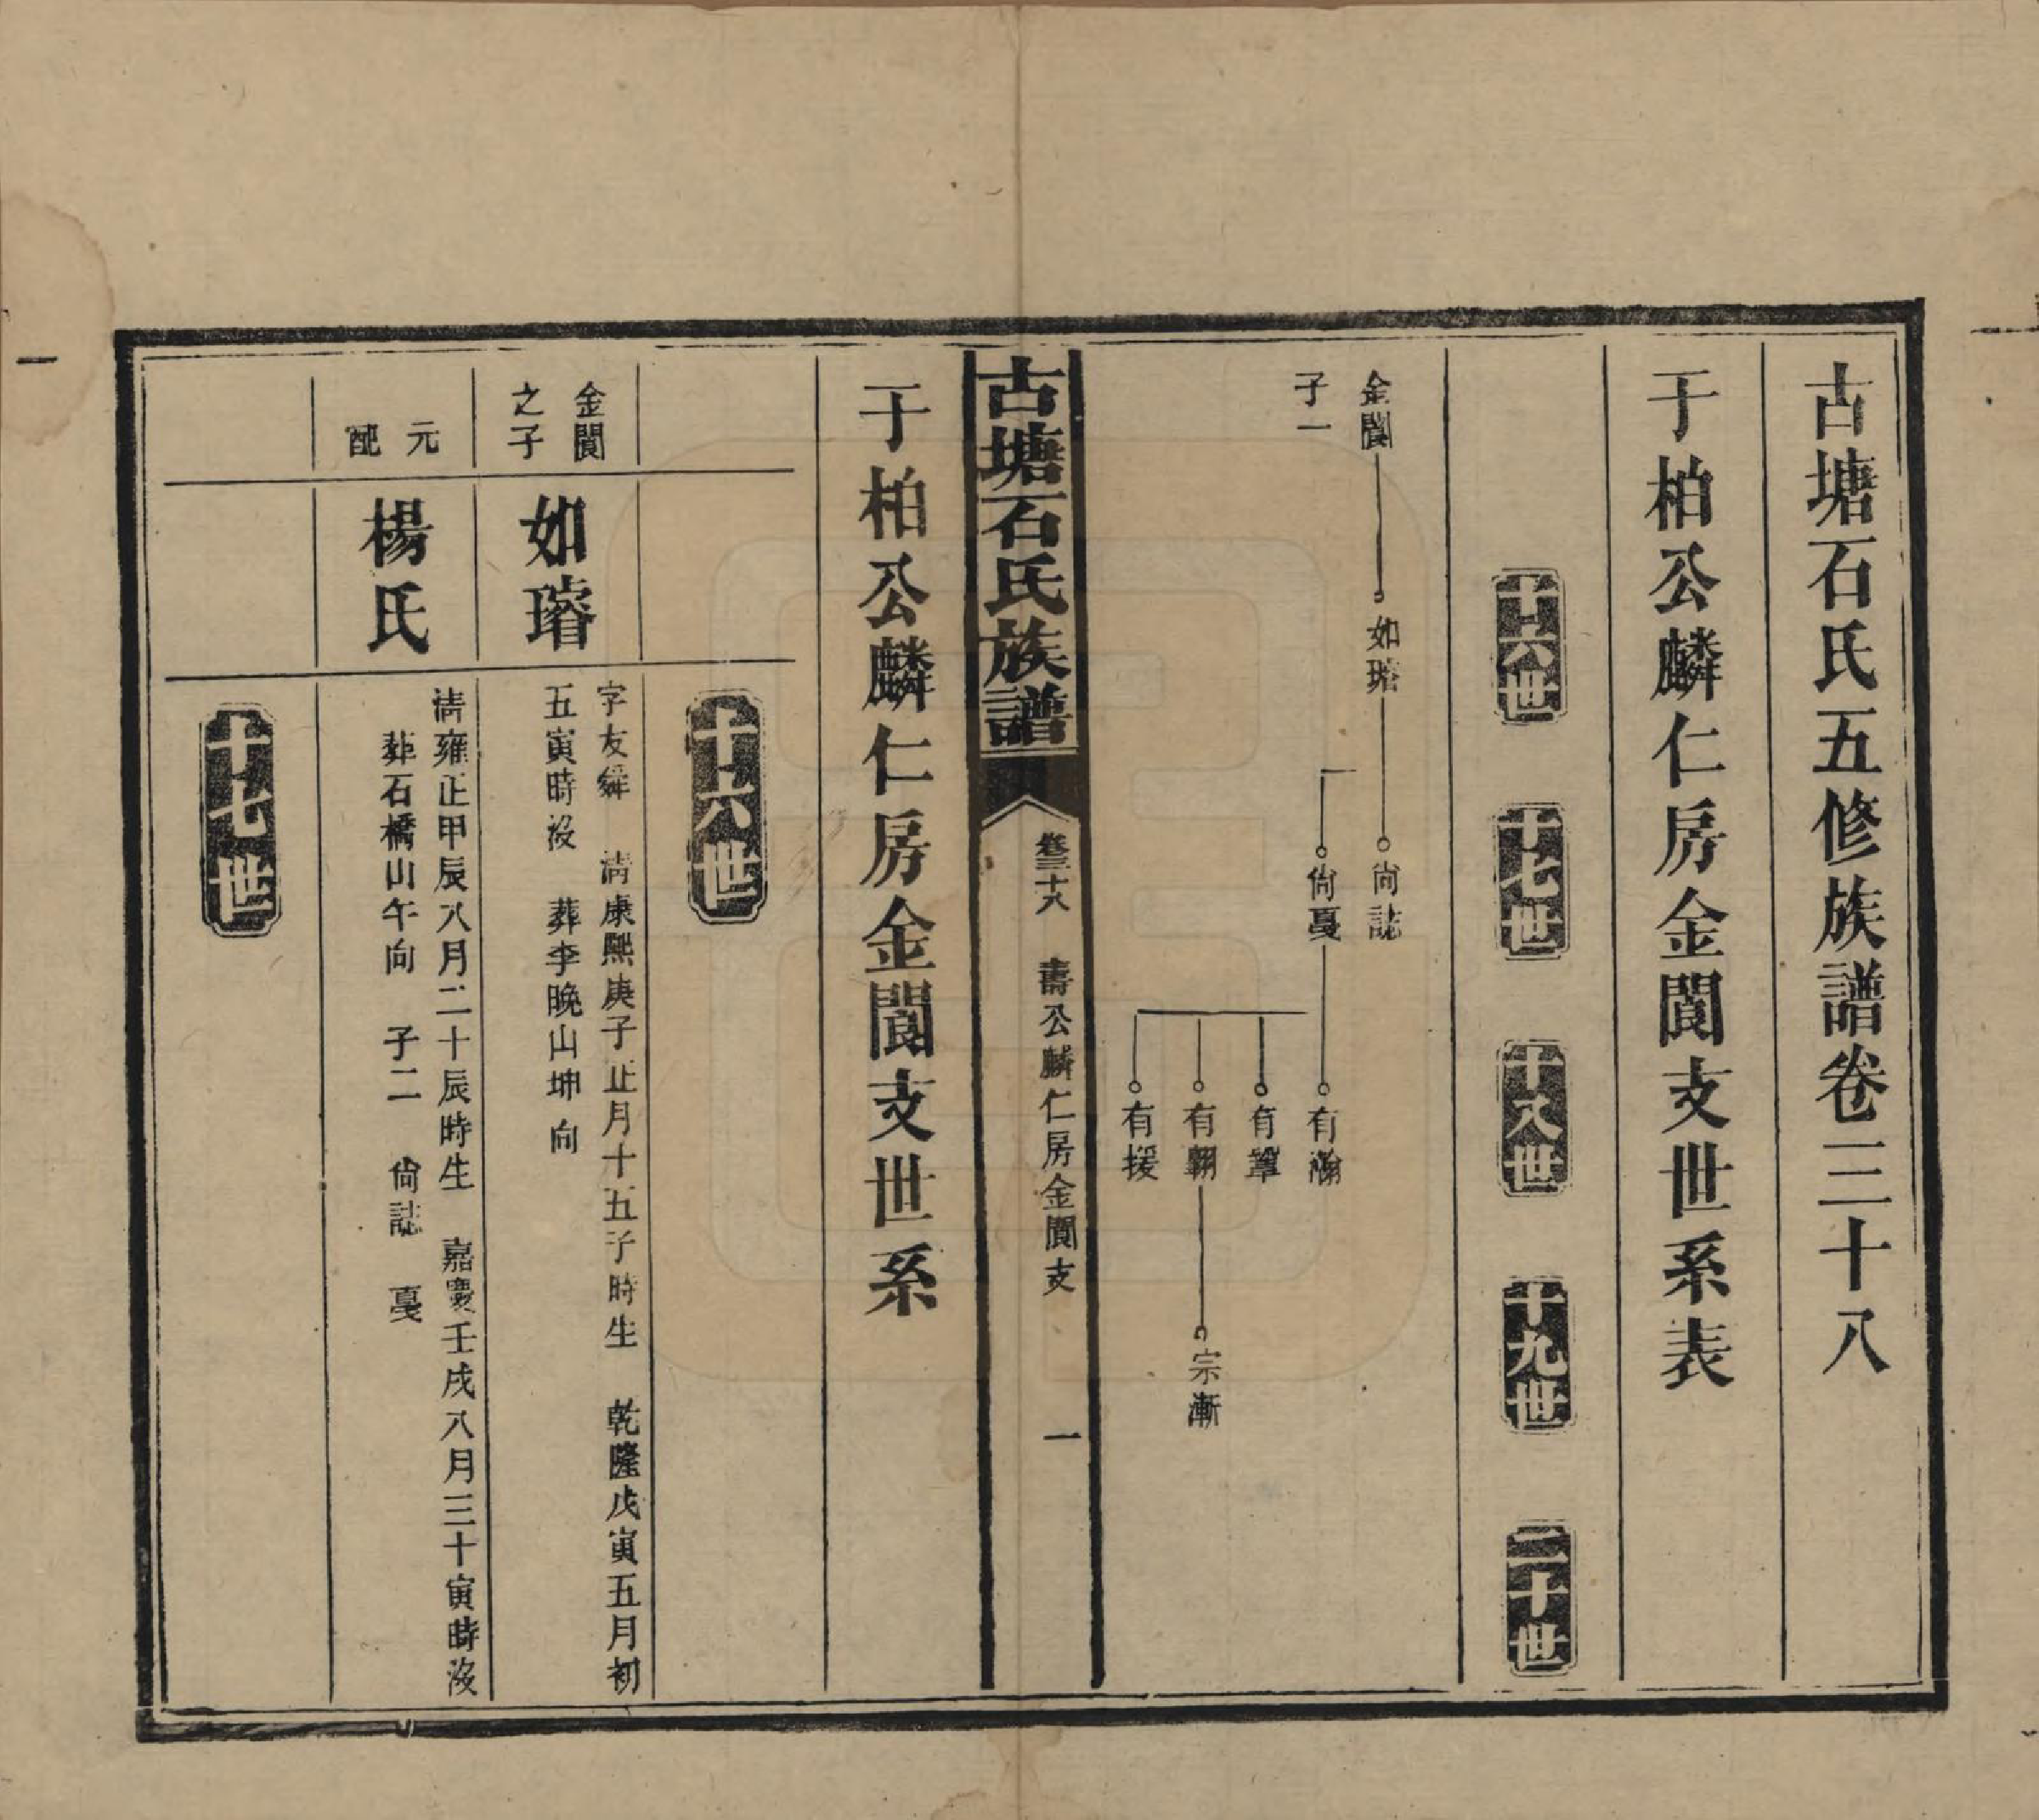 古塘石氏五修族譜卷三十八
于柏公麟仁房金閬支世系表
十六世
十七世
十八世
十九世
二十世
金閬
子一
如璿
尙誌
尙戛
有瀚
有鞏
有翺
有援
宗漸
古塘石氏族譜
卷三十八
壽公麟仁房金閬支
一
于柏公麟仁房金閬支世系
十六世
金閬
之子
如璿
字友舜 淸康熙庚子正月十五子時生 乾隆戊寅五月初
五寅時沒 葬李晚山坤向
元
配
楊氏
淸雍正甲辰八月二十辰時生 嘉慶壬戌八月三十寅時沒
葬石橋山午向 子二 尙誌 戛
十七世